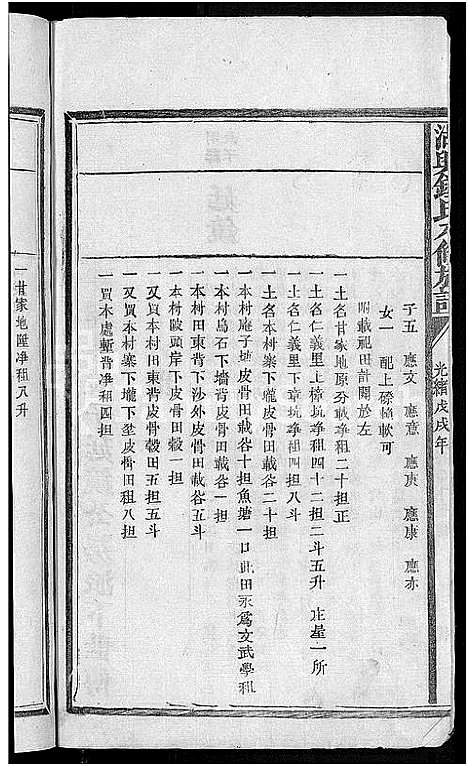 光緒戊戌年
子五 應文 應意 應庚 應康 應亦
女一 配上磜 軟可
附載祀田計開於左
一土名甘家地原分載淨租二十担正
一土名仁義里上樟坑淨租四十二担二斗五升 庄屋一所
一土名仁義里下章坑淨租四担八斗
一土名本村寨下壠皮骨田載谷二十担
一本村庵子地皮骨田載谷十担魚塘一口此田永為文武學租
一本村烏石下墻背皮骨田載谷一担
一本村田東背下沙外皮骨田載谷五斗
一本村陂頭岸下皮骨田穀一担
一又買本村田東背皮骨穀田五担五斗
一又買本村寨下壠下坌皮骨田租八担
一買木處塹背淨租四担
一甘家地匯净租八升